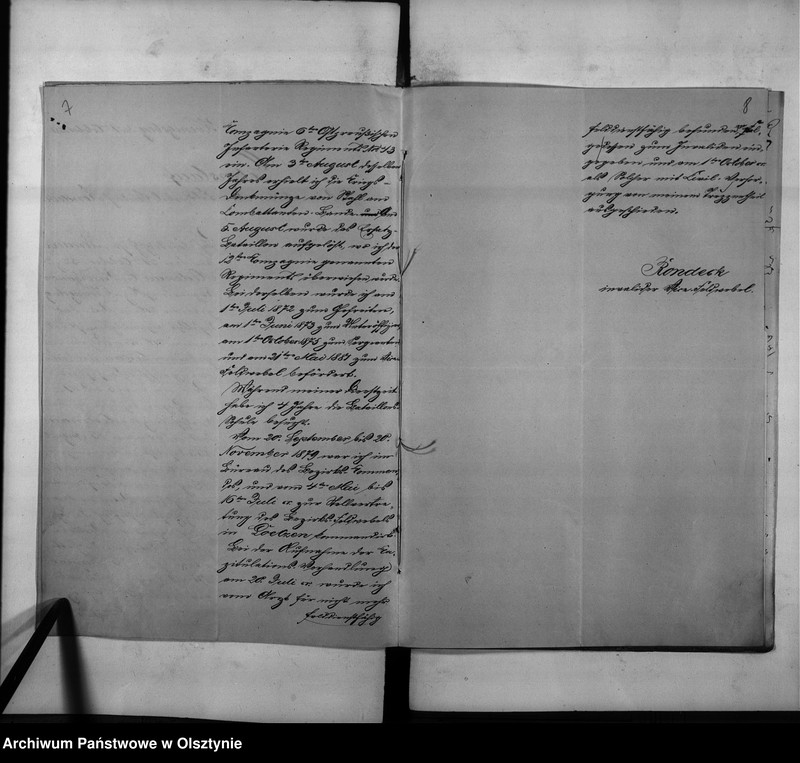 7
Compagnie 5ten Ostpreußischen
Infanterie Regiments Nr. 43
ein. Am 3ten August desselben
Jahres erhielt ich die Kriegs-
Denkmünze von Stahl am
Combattanten-Bande und am
5. August, wurde das Ersatz-
Bataillon aufgelöst, wo ich der
12ten Compagnie genannten
Regiments überwiesen wurde.
Bei derselben wurde ich am
1ten Juli 1872 zum Gefreiten,
am 1ten Juni 1873 zum Unteroffizier,
am 1ten October 1878 zum Sergeanten
und am 21ten Mai 1881 zum Vice-
Feldwebel befördert.
Während meiner Dienstzeit
habe ich 4 Jahre die Bataillons-
Schule besucht.
Vom 20. September bis 20.
November 1879 war ich im
Bureau des Bezirks-Comman-
dos, und vom 4ten Mai bis
16ten Juli cr. zur Stellvertre-
tung des Bezirks-Feldwebels
in Loetzen commandirt.
Bei der Aufnahme der Ca-
pitulations-Verhandlung
am 20. Juli cr. wurde ich
vom Arzt für nicht mehr
felddienstfähig
8
felddienstfähig befunden,
zum Invaliden ein-
gegeben, und am 1ten October cr.
als Solcher mit Civil-Versor-
gung von meinem Truppentheil
ausgeschieden.
Kondeck
invalider Vice-Feldwebel.
Archiwum Państwowe w Olsztynie